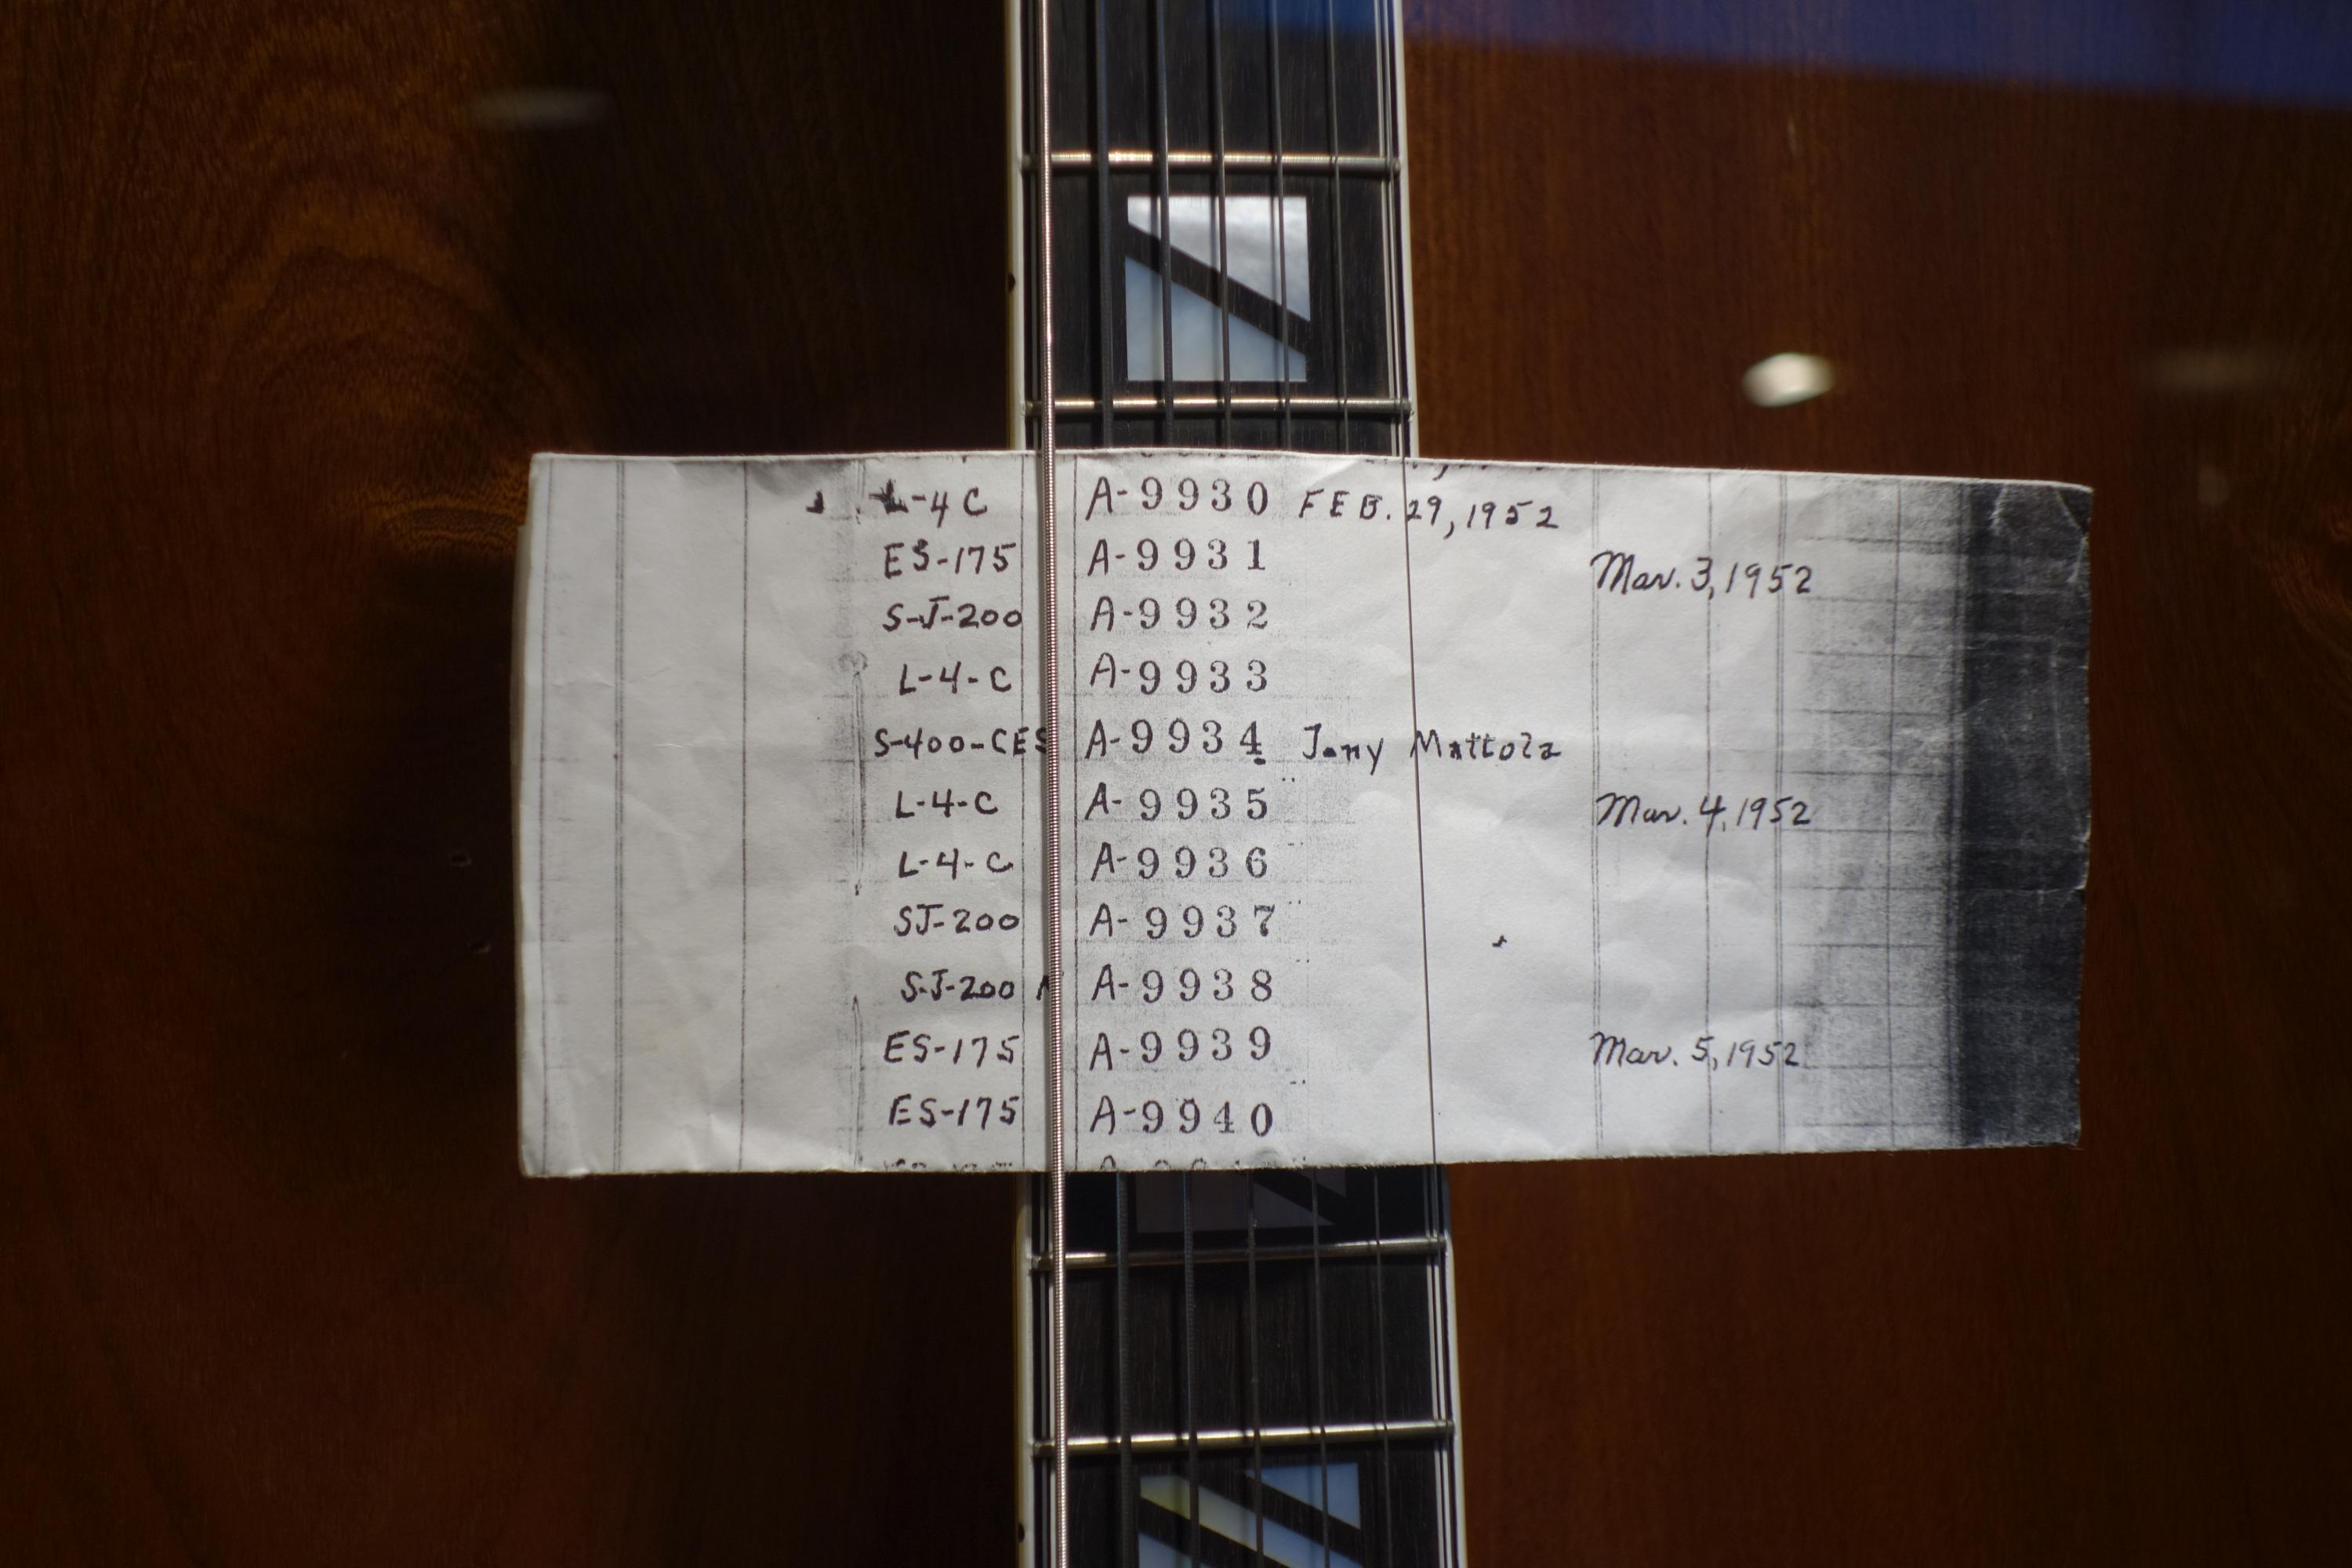 L-4C A-9930 FEB. 29, 1952
ES-175 A-9931 Mar. 3, 1952
S-J-200 A-9932
L-4-C A-9933
S-400-CES A-9934 Tony Mottola
L-4-C A-9935 Mar. 4, 1952
L-4-C A-9936
SJ-200 A-9937
S-J-200 A-9938
ES-175 A-9939 Mar. 5, 1952
ES-175 A-9940